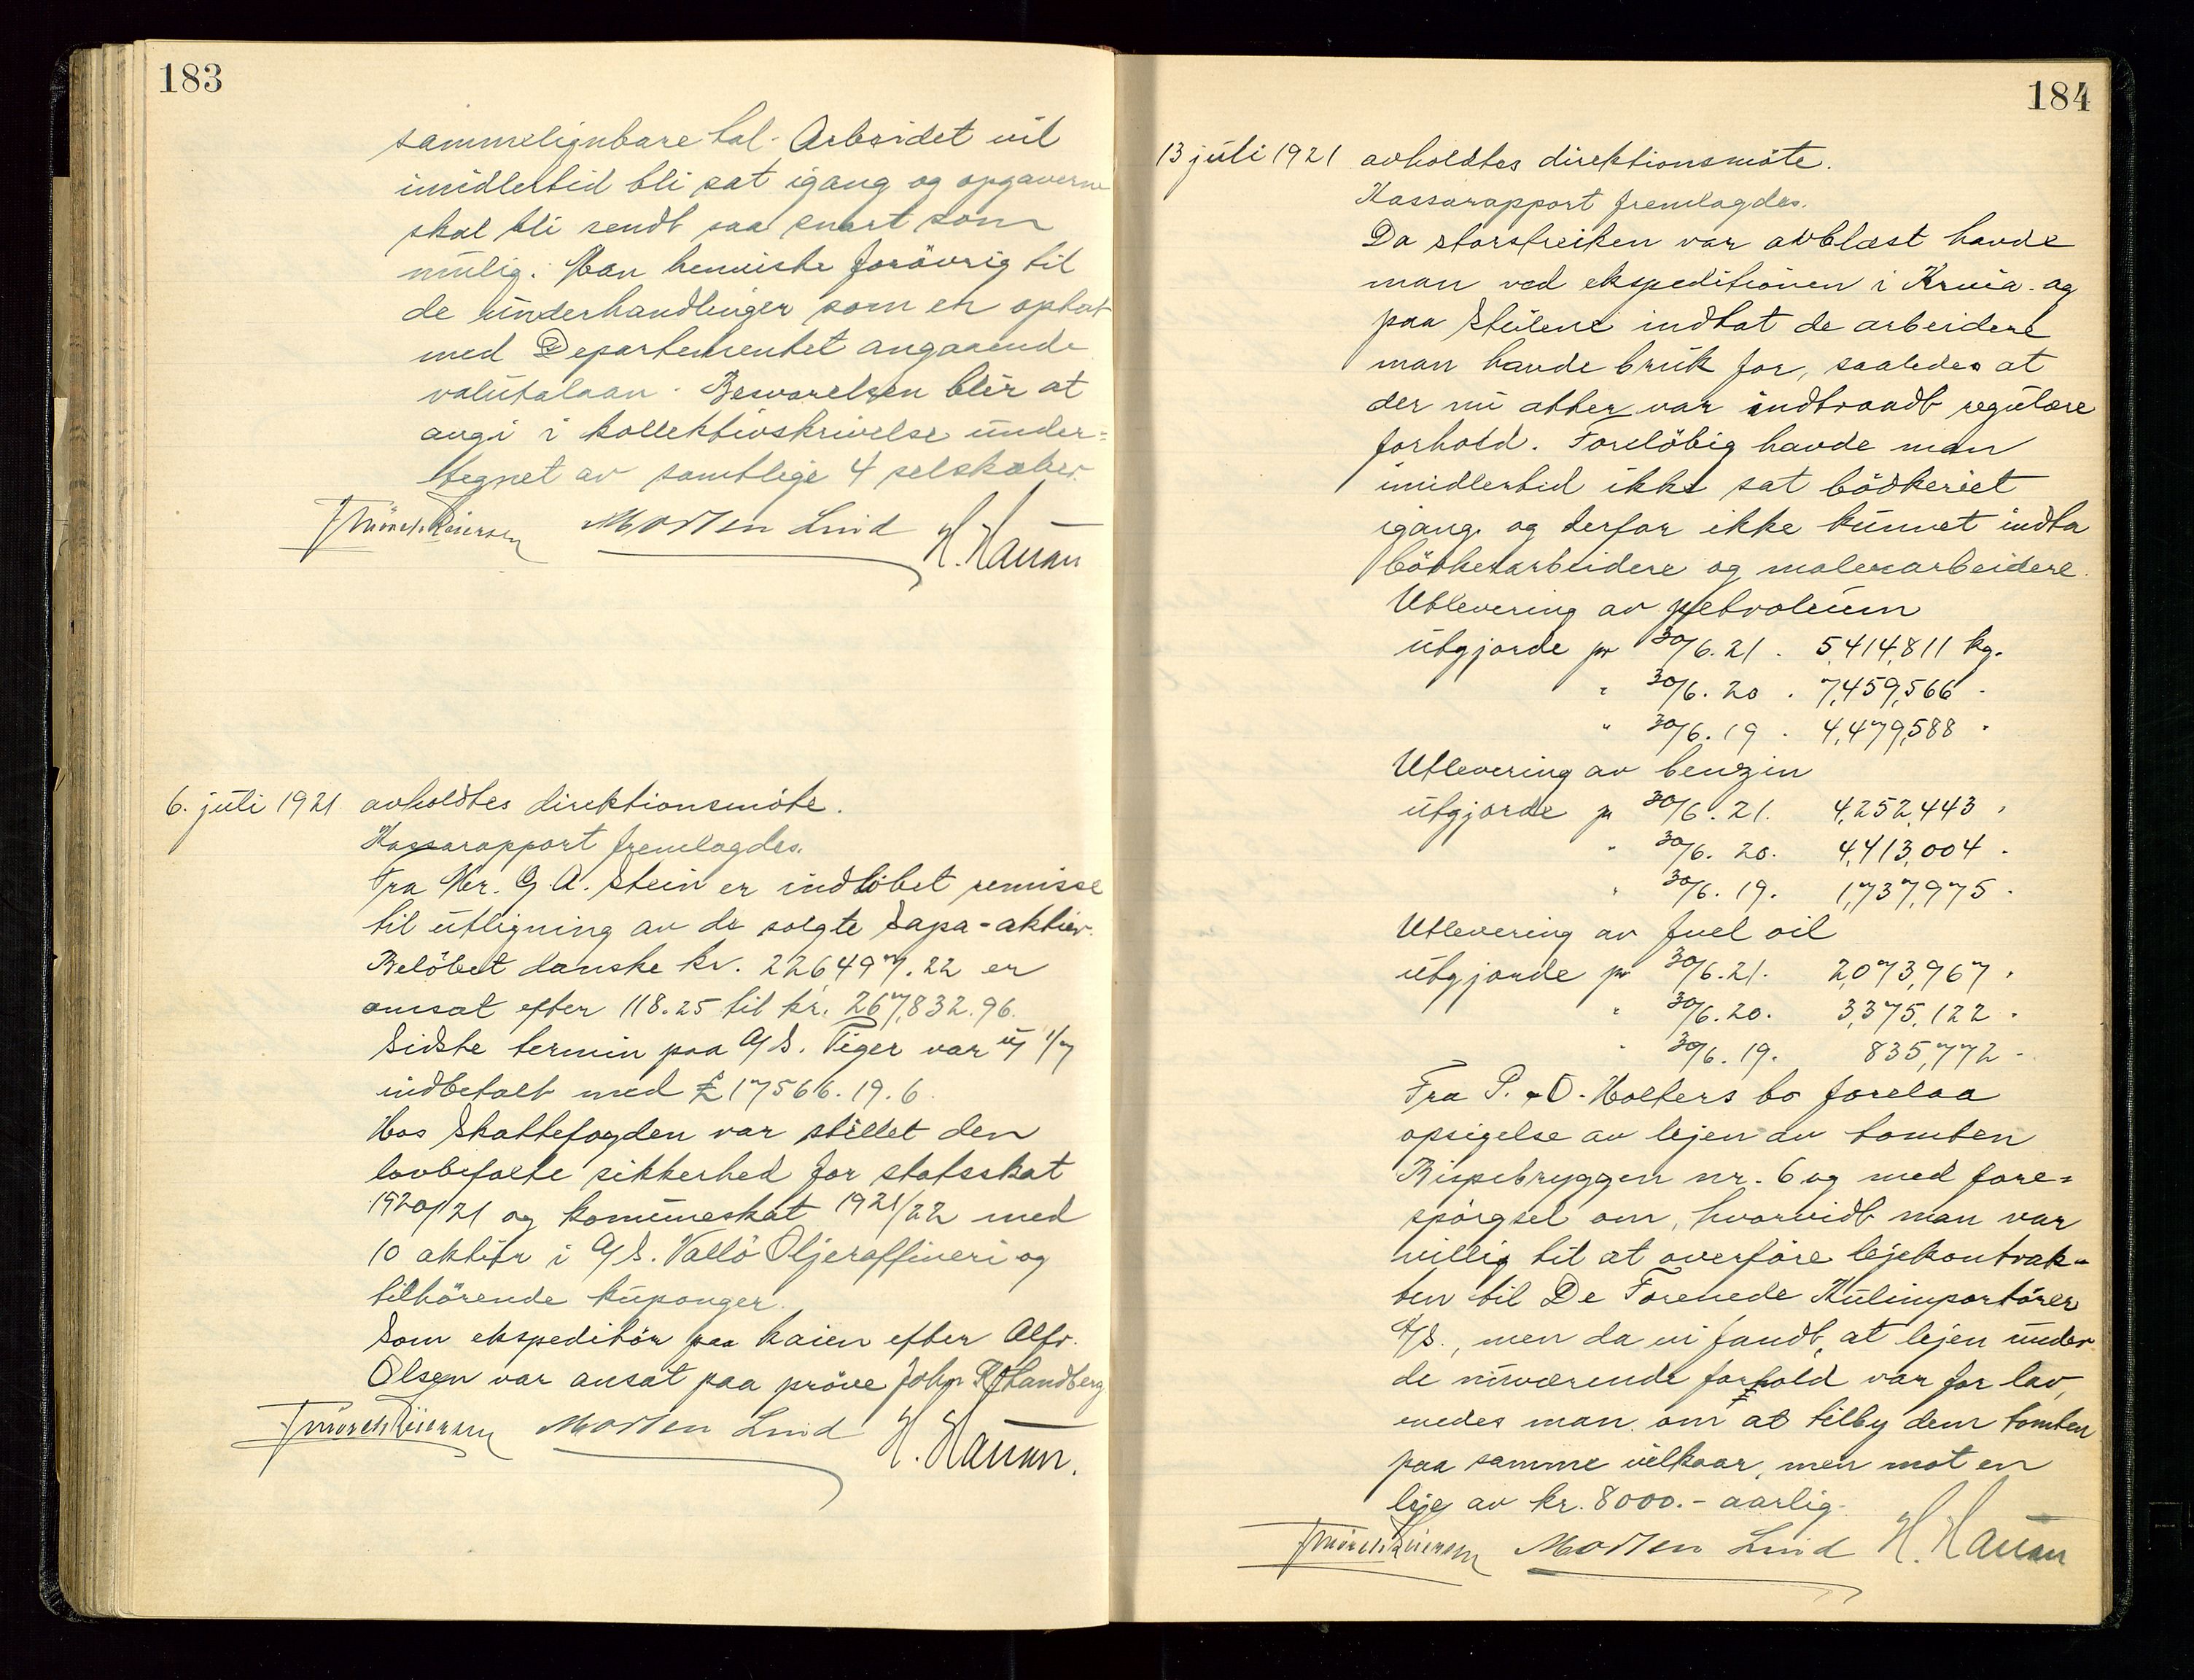 183
sammelignbare tal. Arbeidet vil
imidlertid bli sat igang og opgaverne
skal bli sendt saa snart som
mulig. Man henviste forövrig til
de underhandlinger som er optat
med Departementet angaaende
valutalaan. Besvarelsen blir at
angi i kollektivskrivelse under=
tegnet av samtlige 4 selskaber.
Morten Lind H. Hansen
6. juli 1921 avholdtes direktionsmöte.
Kassarapport fremlagdes.
Fra Hr. G. A. Stein er indlöbet remisse
til utligning av de solgte Sapa-aktier.
Belöbet danske kr. 226497.22 er
omsat efter 118.25 til kr. 267,832.96.
Sidste termin paa A/S. Tiger var 1/7
indbetalt med £ 17566.19.6.
Hos Skattefogden var stillet den
lovbefalte sikkerhed for statsskat
1920/21 og kommuneskat 1921/22 med
10 aktier i A/S. Vallö Oljeraffineri og
tilhörende kuponger.
Som ekspeditör paa kaien efter Alfr.
Olsen var ansat paa pröve John R. Strandberg
Morten Lind H. Hansen.
184
13 juli 1921 avholdtes direktionsmöte.
Kassarapport fremlagdes.
Da storstreiken var avblæst havde
man ved ekspeditionen i Krnia. og
paa Stilene indtat de arbeidere
man havde bruk for, saaledes at
der nu atter var indtraadt regulære
forhold. Forelöbig havde man
imidlertid ikke sat bödkeriet
igang og derfor ikke kunnet indta
bödkerarbeidere og malerarbeidere.
Utlevering av petroleum
utgjorde pr 30/6.21. 5,414,811 kg.
" 30/6.20. 7,459,566 "
" 30/6.19. 4,479,588 "
Utlevering av benzin
utgjorde pr 30/6.21. 4,252,443 "
" 30/6.20. 4,413,004 "
" 30/6.19. 1,737,975 "
Utlevering av fuel oil
utgjorde pr 30/6.21. 2,073,967 "
" 30/6.20. 3,375,122 "
" 30/6.19. 835,772 "
Fra P. & O. Holters bo forelaa
opsigelse av lejen av tomten
Bispebryggen nr. 6 og med fore=
spörgsel om, hvorvidt man var
willig til at overföre lejekontrak=
ten til De Forenede Kulimportörer
A/S., men da vi fandt, at lejen under
de nuværende forhold var for lav,
enedes man om at tilby dem tomten
paa samme vilkaar, men mot en
leje av kr. 8000.- aarlig.
Morten Lind H. Hansen